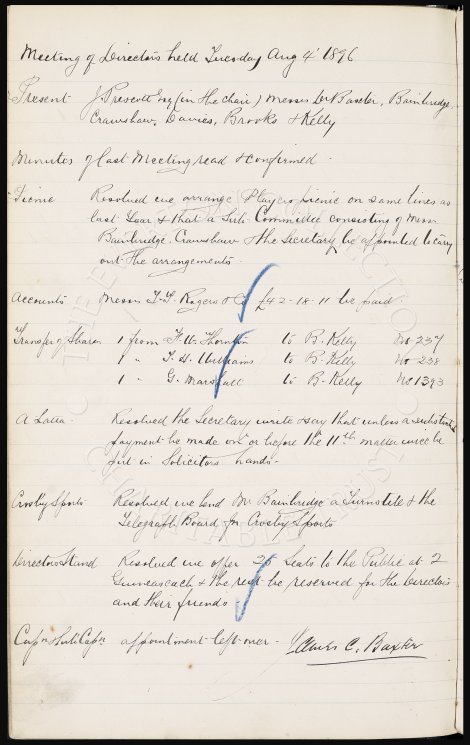 Meeting of Directors held Tuesday Aug 4' 1896
Present J. Prescott Esq (in the chair) Messrs Dr Baxter, Bainbridge,
Crawshaw, Davies, Brooks & Kelly
Minutes of last Meeting read & confirmed.
Picnic Resolved we arrange Players picnic on same lines as
last Year & that a Sub-Committee consisting of Messrs
Bainbridge, Crawshaw & the Secretary be appointed to carry
out the arrangements.
Accounts Messrs T. F. Rogers & Co £42-18-11 be paid.
Transfer of Shares 1 from F. W. Thornton to B. Kelly No 237
1 " T. H. Williams to B. Kelly No 238
1 " G. Marshall to B. Kelly No 1393
A Latta. Resolved the Secretary write & say that unless a substantial
payment be made on or before the 11th matter will be
put in Solicitors hands.
Crosby Sports Resolved we lend Mr Bainbridge a Turnstile & the
Telegraph Board for Crosby Sports
Directors Stand Resolved we offer 25 Seats to the Public at 2
Guineas each & the rest be reserved for the Directors
and their friends
Capn & Sub Capn appointment left over. James C. Baxter